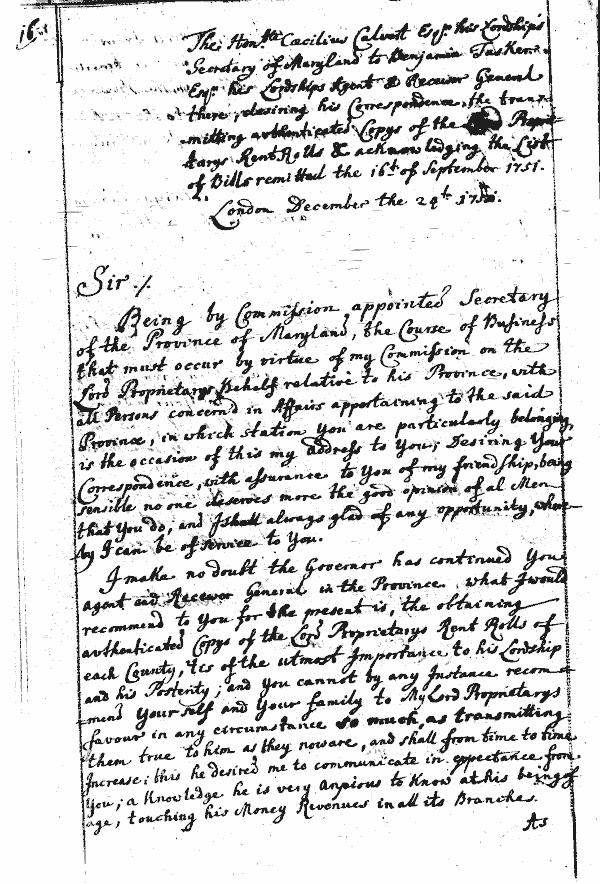 The Hon.ble Cæcilius Calvert Esq.r his Lordship's
Secretary of Maryland to Benjamin Tasker
Esq.r his Lordships Agent & Receiver General
there, desiring his Correspondence, the trans-
mitting authenticated Copys of the Propri-
tarys Rent Rolls & acknowledging the List
of Bills remitted the 16.t of September 1751.
London December the 24.t 1751.
Sir ./.
Being by Commission appointed Secretary
of the Province of Maryland, the Course of Business
that must occur by virtue of my Commission on the
Lord Proprietarys Behalf relative to his Province, with
all Persons concern'd in Affairs appertaining to the said
Province, in which station you are particularly belonging,
is the occasion of this my address to You; Desiring Your
Correspondence, with assurance to You of my friendship, being
sensible no one deserves more the good opinion of al Men
that You do, and I shall always glad of any opportunity, where
by I can be of service to You.
I make no doubt the Governor has continued You
Agent and Receiver General in the Province. what I would
recommend to You for the present is, the obtaining
authenticated Copys of the Lord Proprietarys Rent Rolls of
each County, 'tis of the utmost Importance to his Lordship
and his Posterity; and you cannot by any Instance recom-
mend Your self and Your family to My Lord Proprietarys
favour in any circumstance so much, as transmitting
them true to him as they now are, and shall from time to time
Increase; this he desired me to communicate in expectance from
You; a Knowledge he is very anxious to Know at his being of
age, touching his Money Revenues in all its Branches.
As